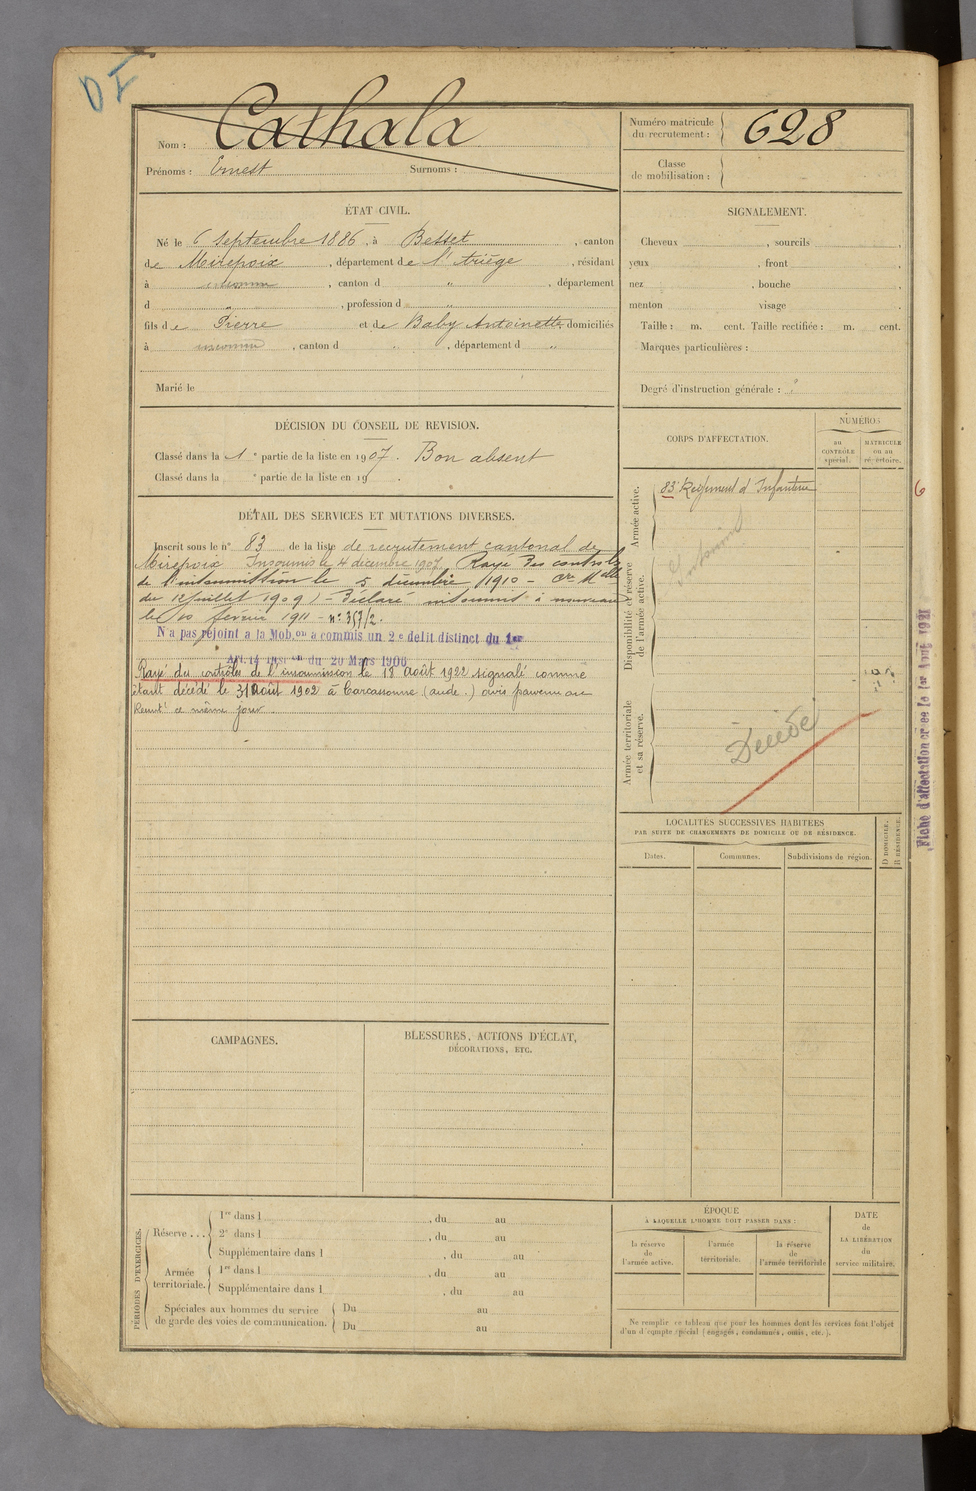 DI
Nom : Cathala
Prénoms : Ernest Surnoms :
Numéro matricule
du recrutement : 628
Classe
de mobilisation :
ÉTAT CIVIL.
Né le 6 Septembre 1886, à Besset, canton
de Mirepoix, département de l'Ariège, résidant
à inconnu, canton d ", département
d ", profession d "
fils de Pierre et de Baby Antoinette domiciliés
à inconnu, canton d ", département d "
Marié le
SIGNALEMENT.
Cheveux , sourcils ,
yeux , front ,
nez , bouche
menton visage .
Taille : m. cent. Taille rectifiée : m. cent.
Marques particulières :
Degré d'instruction générale :
DÉCISION DU CONSEIL DE REVISION.
Classé dans la 1e partie de la liste en 1907. Bon absent
Classé dans la e partie de la liste en 19 .
DÉTAIL DES SERVICES ET MUTATIONS DIVERSES.
Inscrit sous le n° 83 de la liste de recrutement cantonal de
Mirepoix Insoumis le 4 décembre 1907. Rayé des controles
de l'insoumission le 5 décembre 1910 - Cre Mlle
du 12 juillet 1909) - Déclaré insoumis à nouveau
le 10 février 1911 - n° 357/2.
N'a pas rejoint a la Mob.on a commis un 2e delit distinct du 1er
Art. 14 Inson du 20 Mars 1906
Rayé des contrôles de l'insoumission le 18 Août 1922 signalé comme
étant décédé le 31 Août 1902 à Carcassonne (Aude.) avis parvenu au
Recrutt ce même jour
CORPS D'AFFECTATION.
NUMÉROS
au
CONTRÔLE
spécial.
MATRICULE
ou au
répertoire.
Armée active.
83 Régiment d'Infanterie
6
Insoumis
Disponibilité et réserve
de l'armée active.
Armée territoriale
et sa réserve.
Décédé
Fiche d'affectation créée le 1er Août 1921
LOCALITÉS SUCCESSIVES HABITÉES
PAR SUITE DE CHANGEMENTS DE DOMICILE OU DE RÉSIDENCE.
Dates.
Communes.
Subdivisions de région.
D DOMICILE.
R RÉSIDENCE.
CAMPAGNES.
BLESSURES, ACTIONS D'ÉCLAT,
DÉCORATIONS, ETC.
PÉRIODES D'EXERCICES.
Réserve ...
1re dans l , du au
2e dans l , du au
Supplémentaire dans l , du au
Armée
territoriale.
1re dans l , du au
Supplémentaire dans l , du au
Spéciales aux hommes du service
de garde des voies de communication.
Du au
Du au
ÉPOQUE
À LAQUELLE L'HOMME DOIT PASSER DANS :
la réserve
de
l'armée active.
l'armée
territoriale.
la réserve
de
l'armée territoriale
DATE
de
LA LIBÉRATION
du
service militaire.
Ne remplir ce tableau que pour les hommes dont les services font l'objet
d'un décompte spécial (engagés, condamnés, omis, etc.).